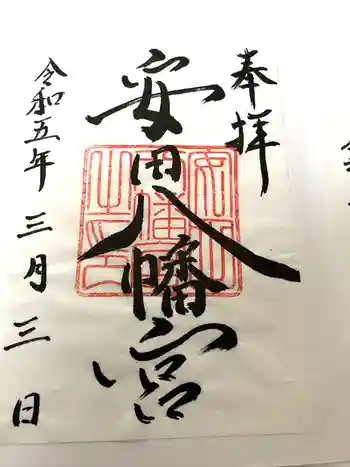 奉拝
安田八幡宮
令和五年三月三日